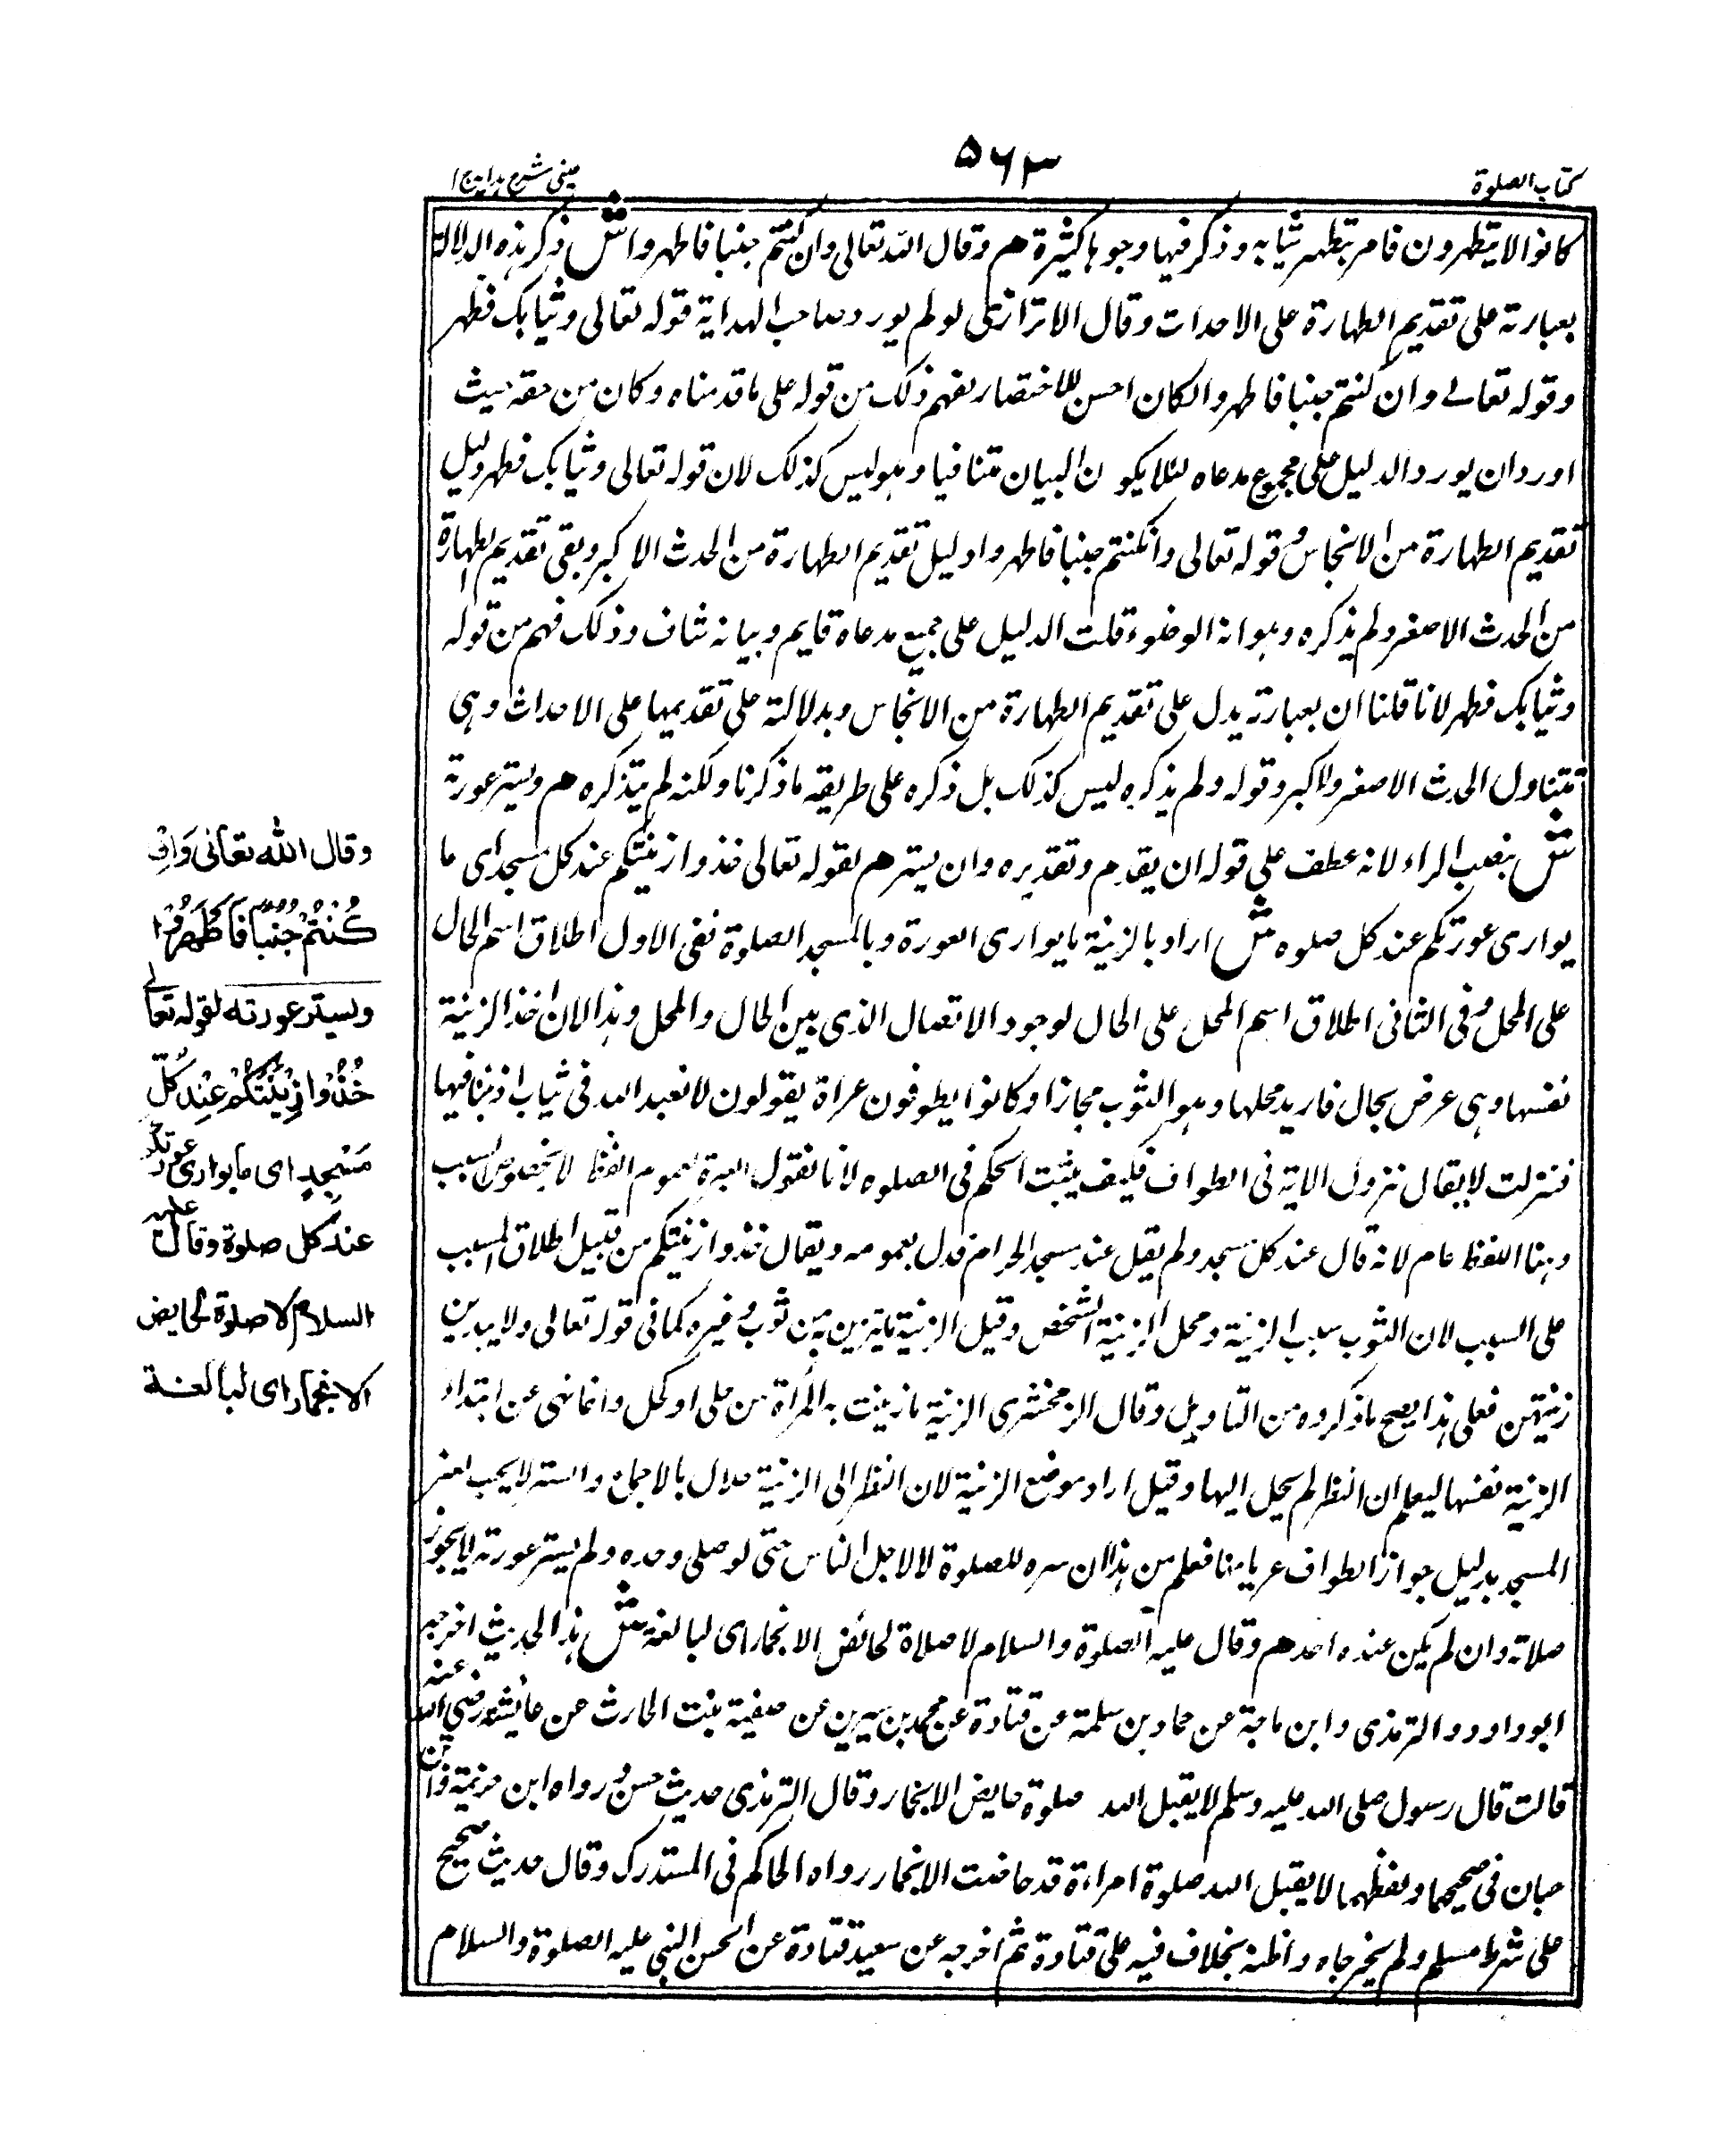 كتاب الصلوة
٥٦٣
عينى شرح هدايه ج ١
كانوا لا يتطهرون فامر بتطهر ثيابه وذكر فيها وجوها كثيرة هم وقال الله تعالى وان كنتم جنبا فاطهروا ش ذكر هذه الدلالة
بعبارته على تقديم الطهارة على الاحداث وقال الاترازى لو لم يورد صاحب الهداية قوله تعالى وثيابك فطهر
وقوله تعالے وان كنتم جنبا فاطهروا لكان احسن للاختصار لفهم ذلك من قوله على ما قدمناه وكان من حقه حيث
اورد ان يورد الدليل على مجموع مدعاه لئلا يكون البيان متنافيا وهو ليس كذلك لان قوله تعالى وثيابك فطهر دليل
تقديم الطهارة من الانجاس وقوله تعالى وان كنتم جنبا فاطهروا دليل تقديم الطهارة من الحدث الاكبر وبقى تقديم الطهارة
من الحدث الاصغر ولم يذكره وهو انه الوضوء قلت الدليل على جميع مدعاه قايم وبيانه شاف وذلك فهم من قوله
وثيابك فطهر لانا قلنا ان بعبارته يدل على تقديم الطهارة من الانجاس وبدلالته على تقديمها على الاحداث وهى
تتناول الحدث الاصغر والاكبر وقوله ولم يذكره ليس كذلك بل ذكره على طريقه ما ذكرنا ولكنه لم يتذكره هم ويستر عورته
ش بنصب الراء لانه عطف على قوله ان يقدم وتقديره وان يستر هم لقوله تعالى خذوا زينتكم عند كل مسجد اى ما
يوارى عورتكم عند كل صلوه ش اراد بالزينة ما يوارى العورة وبالمسجد الصلوة نفى الاول اطلاق اسم الحال
على المحل وفى الثانى اطلاق اسم المحل على الحال لوجود الاتصال الذى بين الحال والمحل وهذا لان اخذ الزينة
نفسها وهى عرض محال فاريد محلها وهو الثوب مجازا وكانوا يطوفون عراة يقولون لا نعبد الله فى ثياب اذنبنا فيها
فنزلت لا يقال نزول الاية فى الطواف فكيف يثبت الحكم فى الصلوه لانا نقول العبرة لعموم اللفظ لا بخصوص السبب
وهنا اللفظ عام لانه قال عند كل مسجد ولم يقل عند مسجد الحرام فدل بعمومه ويقال خذوا زينتكم من قبيل اطلاق المسبب
على السبب لان الثوب سبب الزينة ومحل الزينة الشخص وقيل الزينة ما يتزين به من ثوب وغيره كما فى قوله تعالى ولا يبدين
زينتهن فعلى هذا يصح ما ذكروه من التاويل وقال الزمخشرى الزينة ما زينت به المرأة من حلى او كحل وانما نهى عن ابتداء
الزينة نفسها ليعلم ان النظر لم يحل اليها وقيل اراد موضع الزينة لان النظر الى الزينة حلال بالاجماع والستر لا يجب لعين
المسجد بدليل جواز الطواف عريانا فعلم من هذا ان ستره للصلوة لا لاجل الناس حتى لو صلى وحده ولم يستر عورته لا يجوز
صلاته وان لم يكن عنده احد هم وقال عليه الصلوة والسلام لا صلاة لحائض الا بخمار اى لبالغة ش هذا الحديث اخرجه
ابو داود والترمذى وابن ماجة عن حماد بن سلمة عن قتادة عن محمد بن سيرين عن صفية بنت الحارث عن عائشة رضى الله عنه
قالت قال رسول صلى الله عليه وسلم لا يقبل الله صلوة حايض الا بخمار وقال الترمذى حديث حسن ورواه ابن خزيمة وابن
حبان فى صحيحهما ولفظهما لا يقبل الله صلوة امراءة قد حاضت الا بخمار رواه الحاكم فى المستدرك وقال حديث صحيح
على شرط مسلم ولم يخرجاه واظنه بخلاف فيه على قتادة ثم اخرجه عن سعيد قتادة عن الحسن النبى عليه الصلوة والسلام
وقال الله تعالى وَاِنْ
كُنْتُمْ جُنُبًا فَاطَّهَّرُوْا
ويستر عورته لقوله تعالے
خُذُوا زِيْنَتَكُمْ عِنْدَ كُلِّ
مَسْجِدٍ اى ما يوارى عورتكم
عند كل صلوة وقال عليه
السلام لا صلوة لحايض
الا بخمار اى لبالغة